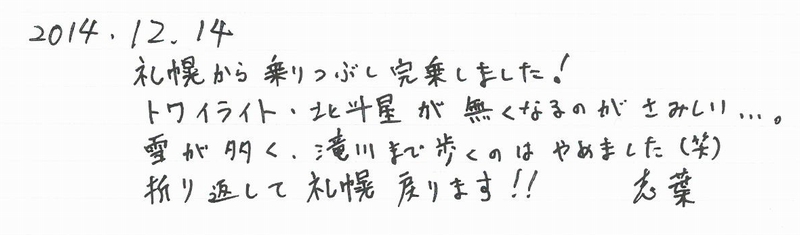 2014.12.14
札幌から乗りつぶし完乗しました!
トワイライト・北斗星が無くなるのがさみしい…。
雪が多く、滝川まで歩くのはやめました(笑)
折り返して札幌戻ります!! 志葉